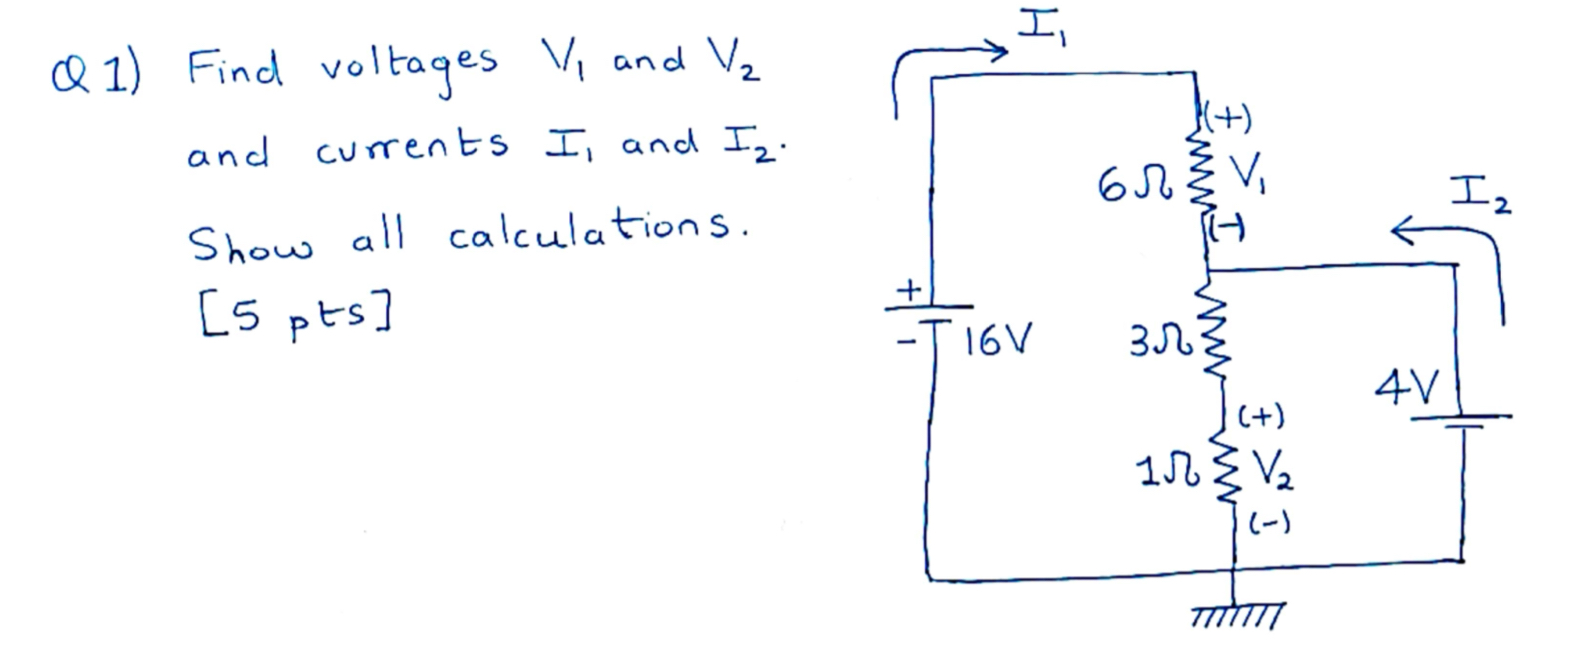 Q1) Find voltages V₁ and V₂
and currents I₁ and I₂.
Show all calculations.
[5 pts]
I₁
(+)
6Ω V₁
(-)
I₂
+
- 16V
3Ω
4V
(+)
1Ω V₂
(-)